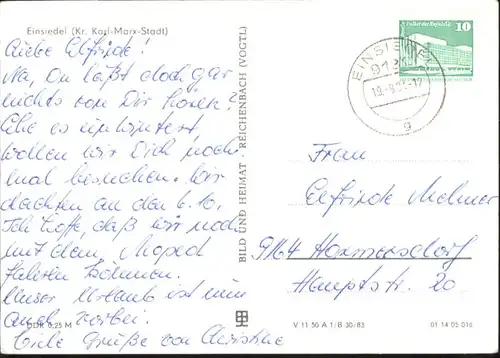 Einsiedel (Kr. Karl-Marx-Stadt)
Liebe Elfriede!
Na, Du läßt doch gar
nichts von Dir hören?
Ehe es einwintert,
wollen wir Dich noch
mal besuchen. Wir
dachten an den 6.10.
Ich hoffe, daß wir noch
mit dem Moped
fahren können.
Unser Urlaub ist nun
auch vorbei.
Viele Grüße von Christine
DDR 0,25 M
BILD UND HEIMAT · REICHENBACH (VOGTL)
10
EINSIEDEL
9
Frau
Elfriede
9164 Hormersdorf
Hauptstr. 20
V 11 50 A 1/B 30/83
01 14 05 016